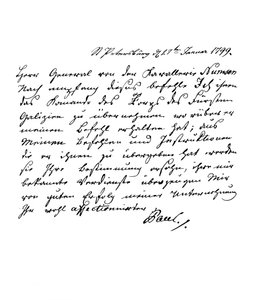 St Petersburg d. 1te Januar 1799.
Herr General von der Kavallerie Numsen
Nach empfang dieses befehle Ich ihnen
das Komando des Korps des Fürsten
Galizien zu übernehmen worüber er
meinen Befehl erhalten hat; aus
Meinen Befehlen und Instruktionen
die er ihnen zu übergeben hat werden
sie Ihre Bestimmung ersehen, ihre mir
bekannte Verdienste überzeugen Mich
von guten Erfolg meiner Unternehmung
Ihr wohl affectionnirter
Paul.